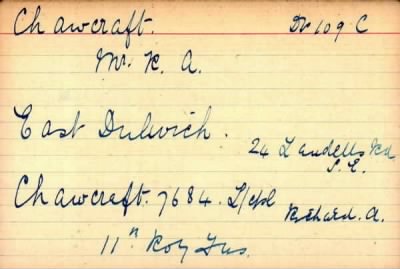 Chawcraft. Dr 109 C
Mr. R. A.
East Dulwich.
24 Landells Rd
S. E.
Chawcraft. 7684. L/cpl
Richard. A.
11th Roy Fus.